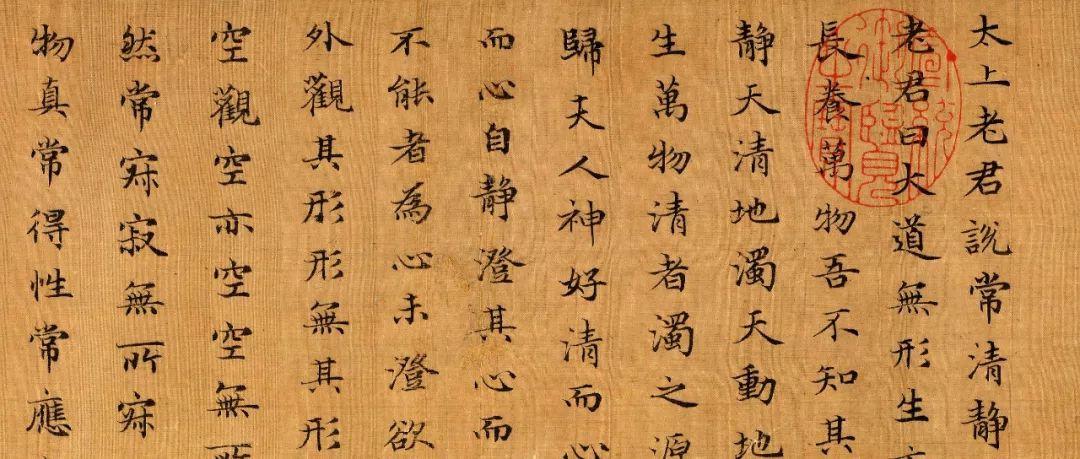 太上老君說常清靜
老君曰大道無形生
長養萬物吾不知其
靜天清地濁天動地
生萬物清者濁之源
歸夫人神好清而心
而心自靜澄其心而
不能者為心未澄欲
外觀其形形無其形
空觀空亦空空無所
然常寂寂無所寂
物真常得性常應
宣統御覽之寶